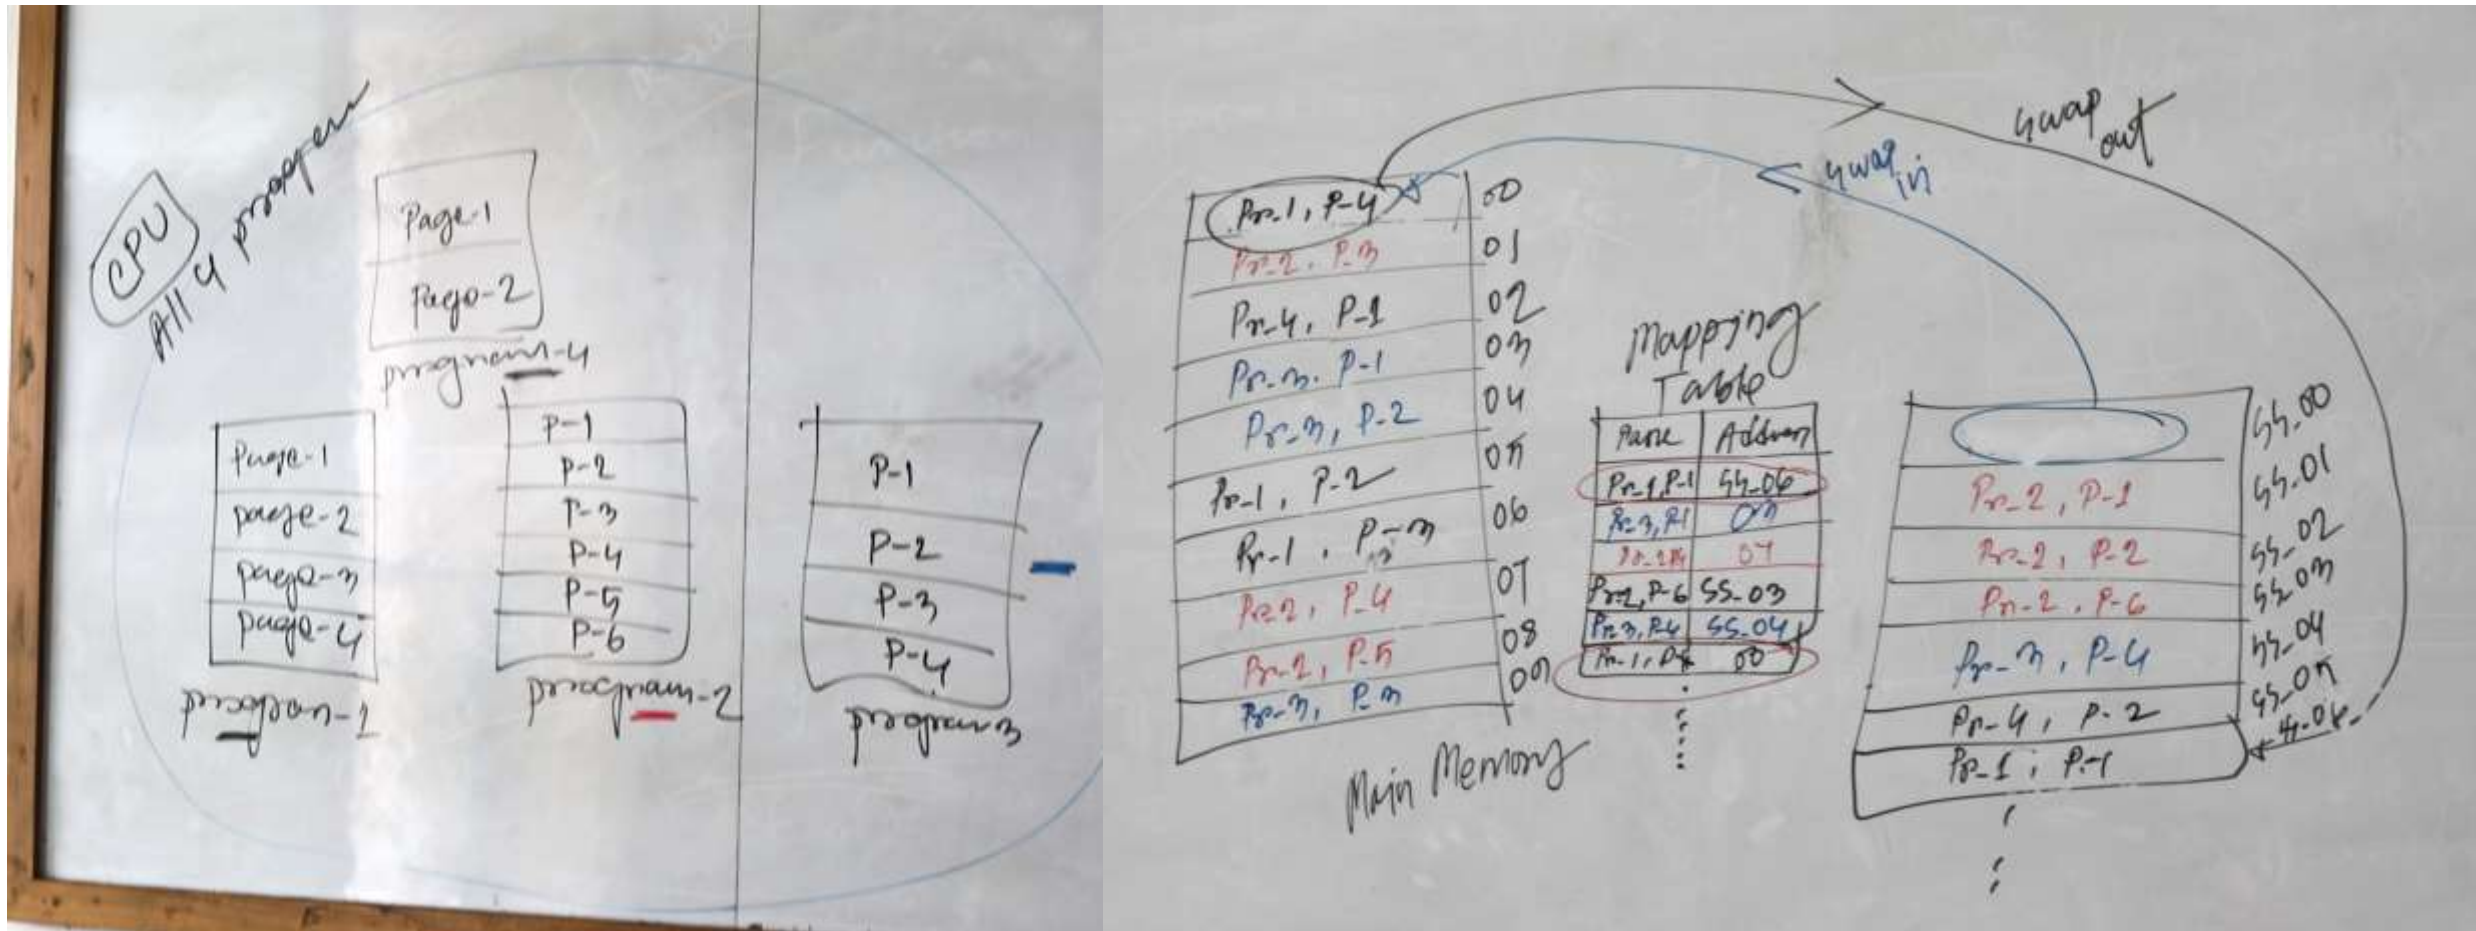 CPU
All 4 program
Page-1
Page-2
program-4
Page-1
page-2
page-3
page-4
program-1
P-1
P-2
P-3
P-4
P-5
P-6
program-2
P-1
P-2
P-3
P-4
program-3
swap out
swap in
Pr-1, P-4 00
Pr-2, P-3 01
Pr-4, P-1 02
Pr-3, P-1 03
Pr-3, P-2 04
Pr-1, P-2 05
Pr-1, P-3 06
Pr-2, P-4 07
Pr-2, P-5 08
Pr-3, P-3 09
Main Memory
Mapping
Table
Address
Pr-1, P-1 SS-06
Pr-3, P-1 03
07
Pr-2, P-6 SS-03
Pr-3, P-4 SS-04
00
SS-00
Pr-2, P-1 SS-01
Pr-2, P-2 SS-02
Pr-2, P-6 SS-03
Pr-3, P-4 SS-04
Pr-4, P-2 SS-05
Pr-1, P-1 SS-06